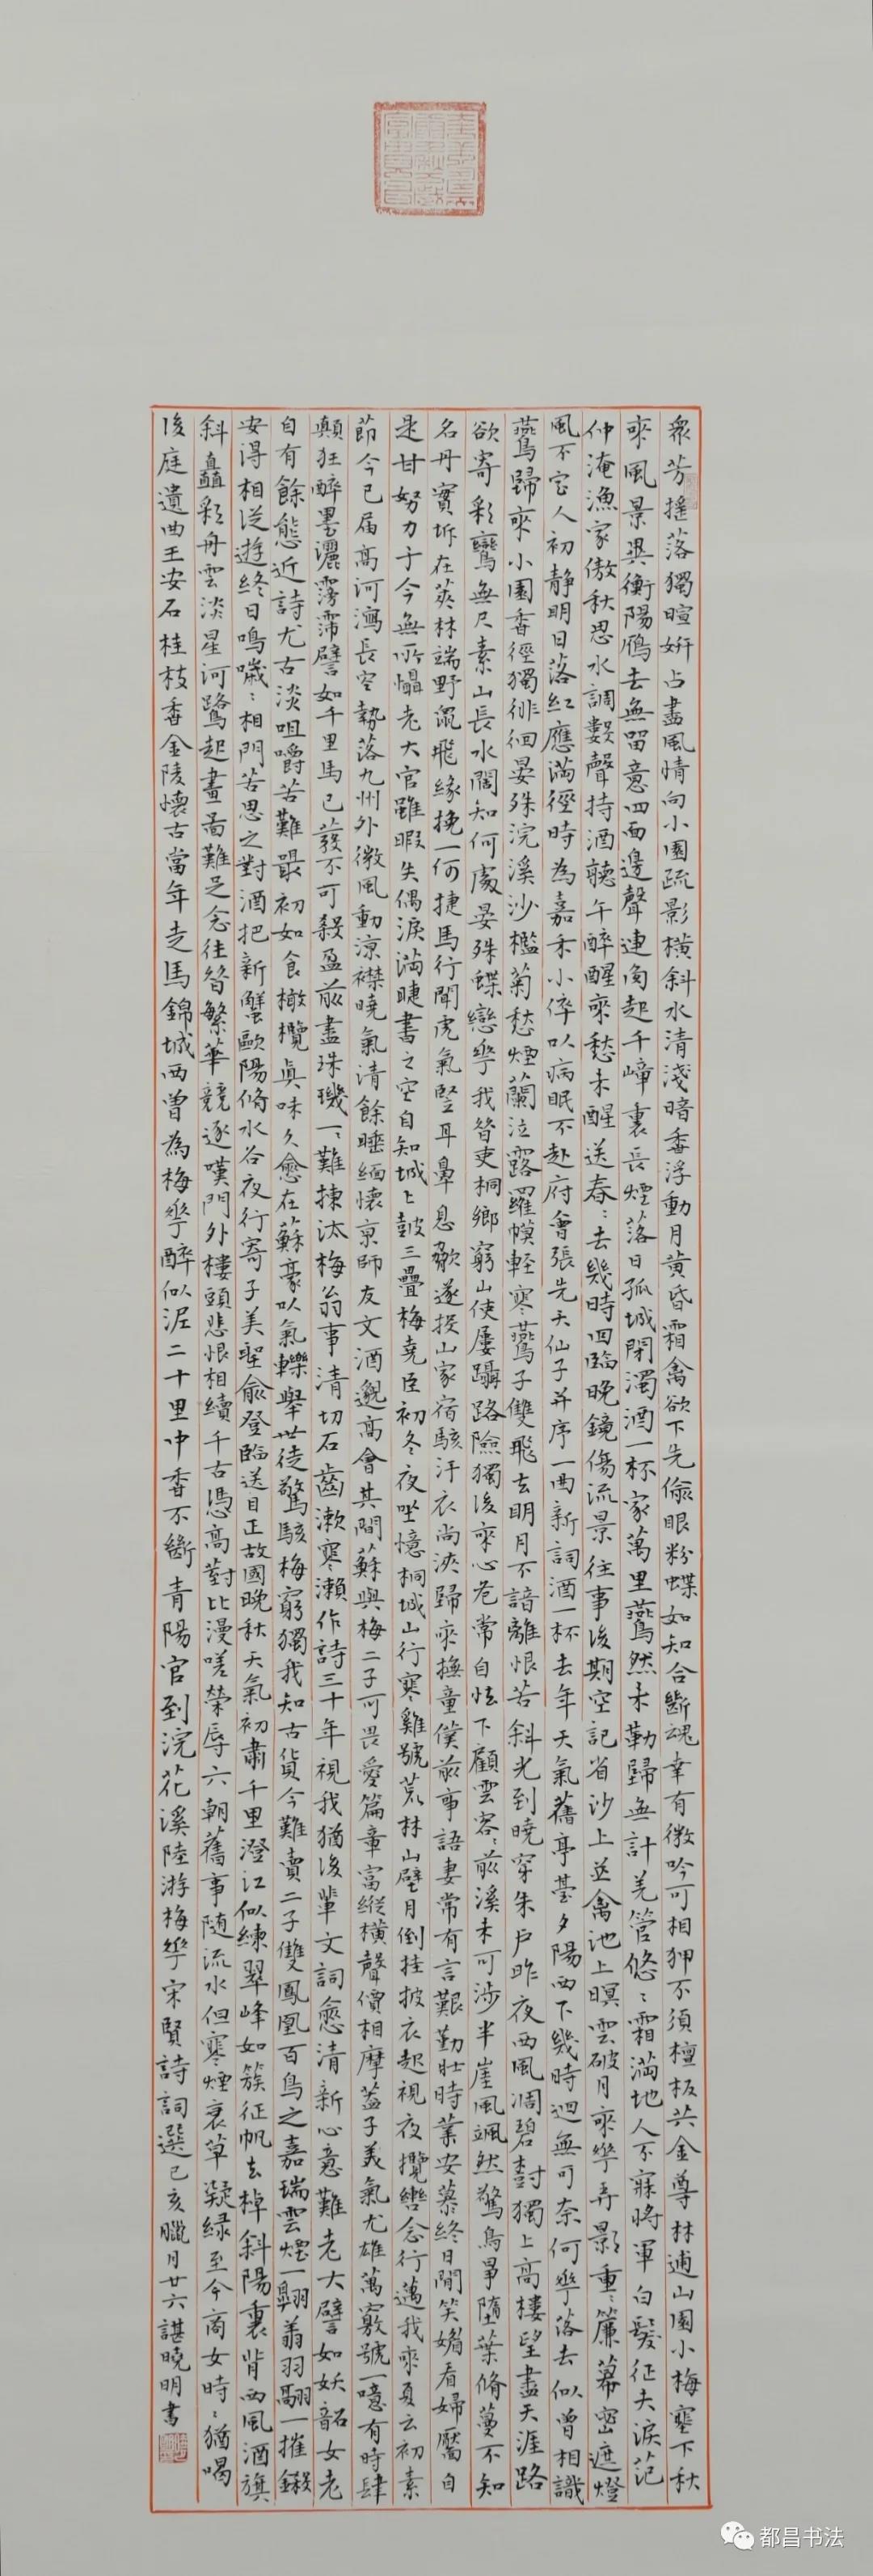 衆芳搖落獨暄妍占盡風情向小園疏影橫斜水清淺暗香浮動月黃昏霜禽欲下先偷眼粉蝶如知合斷魂幸有微吟可相狎不須檀板共金尊林逋山園小梅塞下秋
來風景異衡陽雁去無留意四面邊聲連角起千嶂裏長煙落日孤城閉濁酒一杯家萬里燕然未勒歸無計羌管悠〻霜滿地人不寐將軍白髮征夫淚范
仲淹漁家傲秋思水調數聲持酒聽午醉醒來愁未醒送春〻去幾時回臨晚鏡傷流景往事後期空記省沙上並禽池上暝雲破月來花弄影重〻簾幕密遮燈
風不定人初靜明日落紅應滿徑時為嘉禾小倅以病眠不赴府會張先天仙子并序一曲新詞酒一杯去年天氣舊亭臺夕陽西下幾時迴無可奈何花落去似曾相識
燕歸來小園香徑獨徘徊晏殊浣溪沙檻菊愁煙蘭泣露羅幙輕寒燕子雙飛去明月不諳離恨苦斜光到曉穿朱戶昨夜西風凋碧樹獨上高樓望盡天涯路
欲寄彩鸞無尺素山長水闊知何處晏殊蝶戀花我昔吏桐鄉窮山使屢躡路險獨後來心危常自怯下顧雲容〻前溪未可涉半崖風颯然驚鳥爭墮葉脩蔓不知
名丹實坼在莢林端野鼠飛緣挽一何捷馬行聞虎氣豎耳鼻息歙遂投山家宿駭汗衣尚浹歸來撫童僕前事語妻常有言艱勤壯時業安慕終日閒笑媚看婦靨自
是甘努力于今無所懾老大官雖暇失偶淚滿睫書之空自知城上鼓三疊梅堯臣初冬夜坐憶桐城山行寒雞號荒林山壁月倒挂披衣起視夜攬轡念行邁我來夏云初素
節今已屆高河瀉長空勢落九州外微風動涼襟曉氣清餘睡緬懷京師友文酒邈高會其間蘇與梅二子可畏愛篇章富縱橫聲價相摩蓋子美氣尤雄萬竅號一噫有時肆
顛狂醉墨灑霶霈譬如千里馬已發不可殺盈前盡珠璣一〻難揀汰梅翁事清切石齒漱寒瀨作詩三十年視我猶後輩文詞愈清新心意難老大譬如妖韶女老
自有餘態近詩尤古淡咀嚼苦難嘬初如食橄欖眞味久愈在蘇豪以氣轢舉世徒驚駭梅窮獨我知古貨今難賣二子雙鳳凰百鳥之嘉瑞雲煙一翱翥羽翮一摧鎩
安得相從遊終日鳴噦〻相門苦思之對酒把新蟹歐陽脩水谷夜行寄子美聖俞登臨送目正故國晚秋天氣初肅千里澄江似練翠峰如簇征帆去棹斜陽裏背西風酒旗
斜矗彩舟雲淡星河鷺起畫啚難足念往昔繁華競逐嘆門外樓頭悲恨相續千古憑高對此漫嗟榮辱六朝舊事隨流水但寒煙衰草凝綠至今商女時〻猶唱
後庭遺曲王安石桂枝香金陵懷古當年走馬錦城西曾為梅花醉似泥二十里中香不斷青陽宮到浣花溪陸游梅花宋賢詩詞選己亥臘月廿六諶曉明書
都昌书法